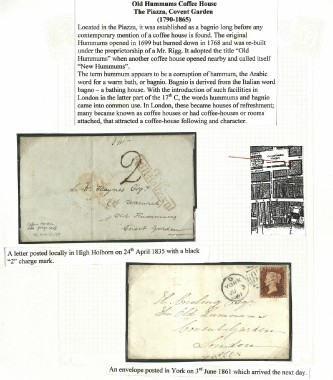 Old Hummums Coffee House
The Piazza, Covent Garden
(1790-1865)
Located in the Piazza, it was established as a bagnio long before any
contemporary mention of a coffee house is found. The original
Hummums opened in 1699 but burned down in 1768 and was re-built
under the proprietorship of a Mr. Rigg. It adopted the title "Old
Hummums" when another coffee house opened nearby and called itself
"New Hummums".
The term hummum appears to be a corruption of hammum, the Arabic
word for a warm bath, or bagnio. Bagnio is derived from the Italian word
bagno – a bathing house. With the introduction of such facilities in
London in the latter part of the 17th C, the words hummums and bagnio
came into common use. In London, these became houses of refreshment;
many became known as coffee houses or had coffee-houses or rooms
attached, that attracted a coffee-house following and character.
2
Haynes Esqr
Old Hummums
Covent Garden
A letter posted locally in High Holborn on 24th April 1835 with a black
"2" charge mark.
YORK
The Old Hummums
Covent Garden
London
An envelope posted in York on 3rd June 1861 which arrived the next day.